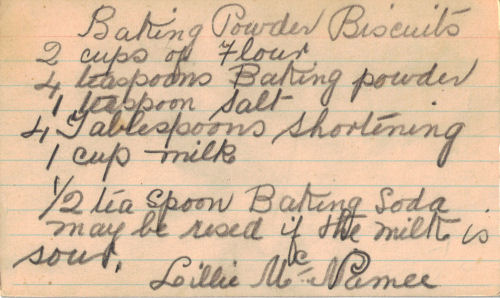 Baking Powder Biscuits
2 cups of Flour
4 teaspoons Baking powder
1 teaspoon salt
4 Tablespoons Shortening
1 cup milk
1/2 tea spoon Baking Soda
may be used if the milk is
sour.
Lillie Mc Namee